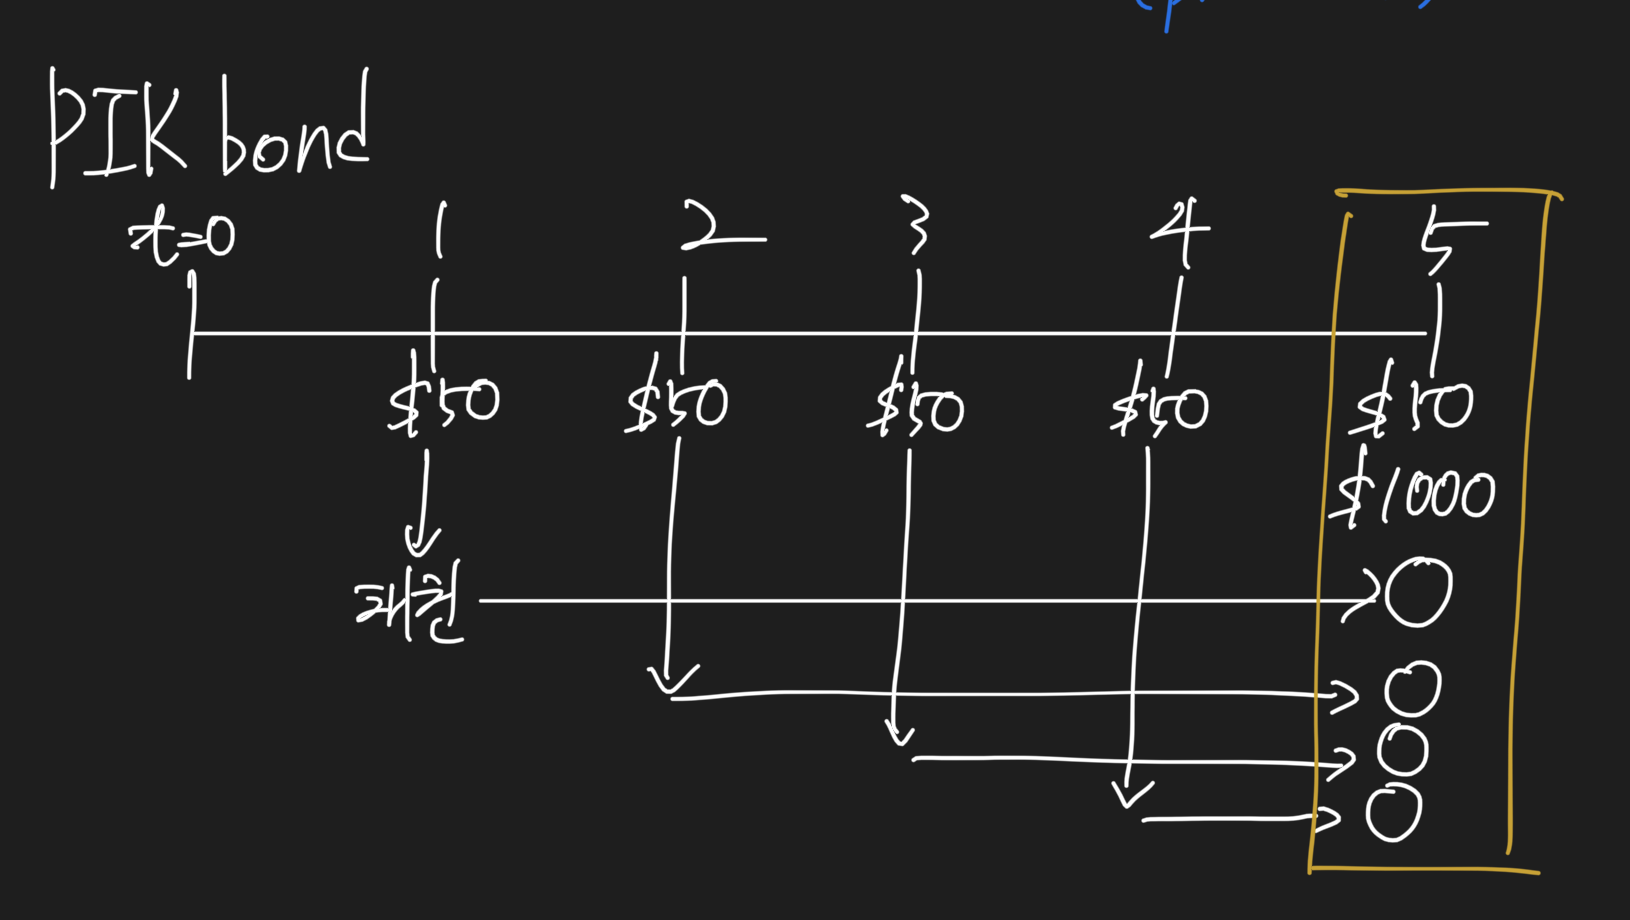 PIK bond
t=0 1 2 3 4 5
$50 $50 $50 $50 $50
$1000
채권